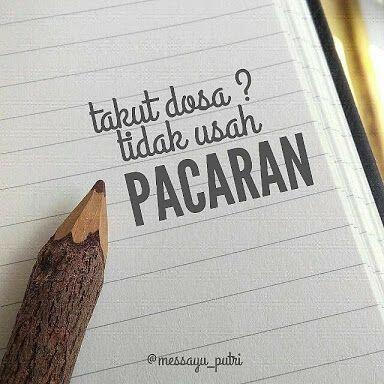 takut dosa ?
tidak usah
PACARAN
@messayu_putri